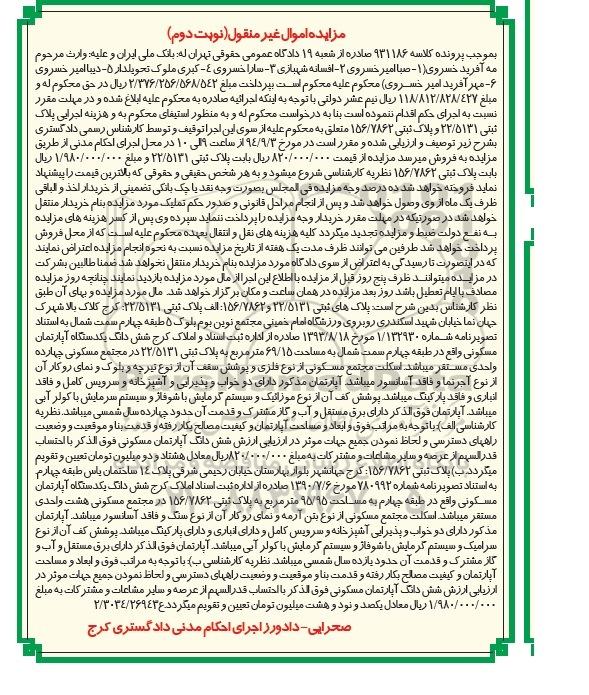 مزایده اموال غیر منقول(نوبت دوم)
بموجب پرونده کلاسه ۹۳۱۱۸۶ صادره از شعبه ۱۹ دادگاه عمومی حقوقی تهران له: بانک ملی ایران و علیه: وارث مرحوم
مه آفرید خسروی(۱- صبا امیر خسروی ۲- افسانه شهبازی ۳- سارا خسروی ٤- کبری ملوک تحویلدار ۵- دیبا امیر خسروی
۶- مهرآفرید امیر خسروی) محکوم علیه محکوم است بپرداخت مبلغ ۲/۳۷۶/۲۵۶/۵۶۸/۵٤۲ ریال در حق محکوم له و
مبلغ ۱۱۸/۸۱۲/۸۲۸/٤۲۷ ریال نیم عشر دولتی با توجه به اینکه اجرائیه صادره به محکوم علیه ابلاغ شده و در مهلت مقرر
نسبت به اجرای حکم اقدام ننموده است بنا به درخواست محکوم له و به منظور استیفای محکوم به و هزینه اجرایی پلاک
ثبتی ۲۲/۵۱۳۱ و پلاک ثبتی ۱۵۶/۷۸۶۲ متعلق به محکوم علیه از سوی این اجرا توقیف و توسط کارشناس رسمی دادگستری
بشرح زیر توصیف و ارزیابی شده و مقرر است در مورخ ۹٤/۹/۳ از ساعت ۹ الی ۱۰ در محل اجرای احکام مدنی از طریق
مزایده به فروش میرسد مزایده از قیمت ۸۲۰/۰۰۰/۰۰۰ ریال بابت پلاک ثبتی ۲۲/۵۱۳۱ و مبلغ ۱/۹۸۰/۰۰۰/۰۰۰ ریال
بابت پلاک ثبتی ۱۵۶/۷۸۶۲ نظریه کارشناسی شروع میشود و به هر شخص حقیقی و حقوقی که بالاترین قیمت را پیشنهاد
نماید فروخته خواهد شد ده درصد وجه مزایده فی المجلس بصورت وجه نقد یا چک بانکی تضمینی از خریدار اخذ و الباقی
ظرف یک ماه از وی وصول خواهد شد و پس از انجام مراحل قانونی و صدور حکم تملیک مورد مزایده بنام خریدار منتقل
خواهد شد در صورتیکه در مهلت مقرر خریدار وجه مزایده را پرداخت ننماید سپرده وی پس از کسر هزینه های مزایده
به نفع دولت ضبط و مزایده تجدید میگردد کلیه هزینه های نقل و انتقال بعهده محکوم علیه است که از محل فروش
پرداخت خواهد شد طرفین می توانند ظرف مدت یک هفته از تاریخ مزایده نسبت به نحوه انجام مزایده اعتراض نمایند
که در اینصورت تا رسیدگی به اعتراض از سوی دادگاه مورد مزایده بنام خریدار منتقل نخواهد شد ضمنا طالبین بشرکت
در مزایده میتوانند ظرف پنج روز قبل از مزایده با اطلاع این اجرا از مال مورد مزایده بازدید نمایند چنانچه روز مزایده
مصادف با ایام تعطیل باشد روز بعد مزایده در همان ساعت و مکان برگزار خواهد شد. مال مورد مزایده و بهای آن طبق
نظر کارشناس بدین شرح است: پلاک های ثبتی ۲۲/۵۱۳۱ و ۱۵۶/۷۸۶۲: الف: پلاک ثبتی ۲۲/۵۱۳۱: کرج کلاک بالا شهرک
جهان نما خیابان شهید اسکندری روبروی ورزشگاه امام خمینی مجتمع نوین بوم بلوک ۵ طبقه چهارم سمت شمال به استناد
تصویرنامه شماره ۱/۱۳۲۹۳۰ مورخ ۱۳۹۳/۸/۱۸ صادره از اداره ثبت اسناد و املاک کرج شش دانگ یکدستگاه آپارتمان
مسکونی واقع در طبقه چهارم سمت شمال به مساحت ۶۹/۱۵ متر مربع به پلاک ثبتی ۲۲/۵۱۳۱ در مجتمع مسکونی چهارده
واحدی مستقر میباشد. اسکلت مجتمع مسکونی از نوع فلزی و پوشش سقف آن از نوع تیرچه و بلوک و نمای روکار آن
از نوع آجرنما و فاقد آسانسور میباشد. آپارتمان مذکور دارای دو خواب و پذیرایی و آشپزخانه و سرویس کامل و فاقد
انباری و فاقد پارکینگ میباشد. پوشش کف آن از نوع موزائیک و سیستم گرمایش با شوفاژ و سیستم سرمایش با کولر آبی
میباشد. آپارتمان فوق الذکر دارای برق مستقل و آب و گاز مشترک و قدمت آن حدود چهارده سال شمسی میباشد. نظریه
کارشناسی الف): با توجه به مراتب فوق و ابعاد و مساحت آپارتمان و کیفیت مصالح بکار رفته و قدمت بنا و موقعیت و وضعیت
راههای دسترسی و لحاظ نمودن جمیع جهات موثر در ارزیابی ارزش شش دانگ آپارتمان مسکونی فوق الذکر با احتساب
قدرالسهم از عرصه و سایر مشاعات و مشترکات به مبلغ ۸۲۰/۰۰۰/۰۰۰ ریال معادل هشتاد و دو میلیون تومان تعیین و تقویم
میگردد.ب) پلاک ثبتی ۱۵۶/۷۸۶۲: کرج جهانشهر بلوار بهارستان خیابان رحیمی شرقی پلاک ۱۲ ساختمان یاس طبقه چهارم.
به استناد تصویرنامه شماره ۷۸۰۹۹۲ مورخ ۱۳۹۰/۷/۶ صادره از اداره ثبت اسناد املاک کرج شش دانگ یکدستگاه آپارتمان
مسکونی واقع در طبقه چهارم به مساحت ۹۵/۹۵ متر مربع به پلاک ثبتی ۱۵۶/۷۸۶۲ در مجتمع مسکونی هشت واحدی
مستقر میباشد. اسکلت مجتمع مسکونی از نوع بتن آرمه و نمای روکار آن از نوع سنگ و فاقد آسانسور میباشد. آپارتمان
مذکور دارای دو خواب و پذیرایی آشپزخانه و سرویس کامل و دارای انباری و دارای پارکینگ میباشد. پوشش کف آن از نوع
سرامیک و سیستم گرمایش با شوفاژ و سیستم گرمایش با کولر آبی میباشد. آپارتمان فوق الذکر دارای برق مستقل و آب و
گاز مشترک و قدمت آن حدود یازده سال شمسی میباشد. نظریه کارشناسی ب): با توجه به مراتب فوق و ابعاد و مساحت
آپارتمان و کیفیت مصالح بکار رفته و قدمت بنا و موقعیت و وضعیت راههای دسترسی و لحاظ نمودن جمیع جهات موثر در
ارزیابی ارزش شش دانگ آپارتمان مسکونی فوق الذکر با احتساب قدرالسهم از عرصه و سایر مشاعات و مشترکات به مبلغ
۱/۹۸۰/۰۰۰/۰۰۰ ریال معادل یکصد و نود و هشت میلیون تومان تعیین و تقویم میگردد.ع۲/۳۰۳٤/۲۶۹٤۳
صحرایی- دادورز اجرای احکام مدنی دادگستری کرج